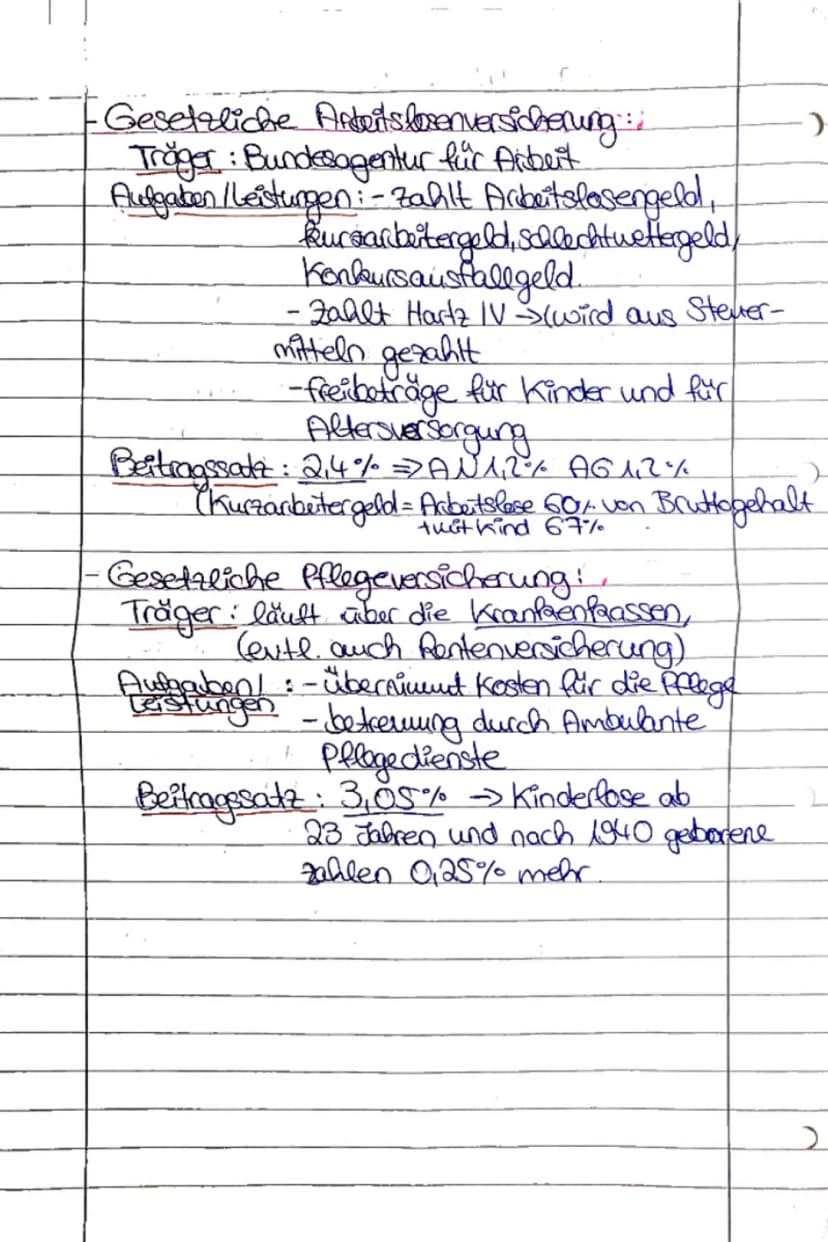 - Gesetzliche Arbeitslosenversicherung:
Träger: Bundesagentur für Arbeit
Aufgaben/Leistungen: - zahlt Arbeitslosengeld,
Kurzarbeitergeld, Schlechtwettergeld,
Konkursausfallgeld.
- Zahlt Hartz IV → (wird aus Steuer-
mitteln gezahlt
- freibeträge für Kinder und für
Altersversorgung
Beitragssatz: 2,4% ⇒ AN 1,2% AG 1,2%
(Kurzarbeitergeld = Arbeitslose 60% von Bruttogehalt
+ mit Kind 67%
- Gesetzliche Pflegeversicherung:
Träger: läuft über die Krankenkassen,
(evtl. auch Rentenversicherung)
Aufgaben/ : - übernimmt Kosten für die Pflege
Leistungen - betreuung durch Ambulante
Pflegedienste
Beitragssatz: 3,05% → Kinderlose ab
23 Jahren und nach 1940 geborene
zahlen 0,25% mehr.